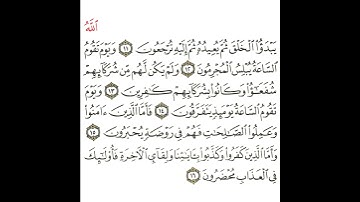 ٱللَّهُ
يَبْدَؤُا۟ ٱلْخَلْقَ ثُمَّ يُعِيدُهُۥ ثُمَّ إِلَيْهِ تُرْجَعُونَ ١١ وَيَوْمَ تَقُومُ
ٱلسَّاعَةُ يُبْلِسُ ٱلْمُجْرِمُونَ ١٢ وَلَمْ يَكُن لَّهُم مِّن شُرَكَآئِهِمْ
شُفَعَٰٓؤُا۟ وَكَانُوا۟ بِشُرَكَآئِهِمْ كَٰفِرِينَ ١٣ وَيَوْمَ
تَقُومُ ٱلسَّاعَةُ يَوْمَئِذٍ يَتَفَرَّقُونَ ١٤ فَأَمَّا ٱلَّذِينَ ءَامَنُوا۟
وَعَمِلُوا۟ ٱلصَّٰلِحَٰتِ فَهُمْ فِى رَوْضَةٍ يُحْبَرُونَ ١٥
وَأَمَّا ٱلَّذِينَ كَفَرُوا۟ وَكَذَّبُوا۟ بِـَٔايَٰتِنَا وَلِقَآئِ ٱلْءَاخِرَةِ فَأُو۟لَٰٓئِكَ
فِى ٱلْعَذَابِ مُحْضَرُونَ ١٦